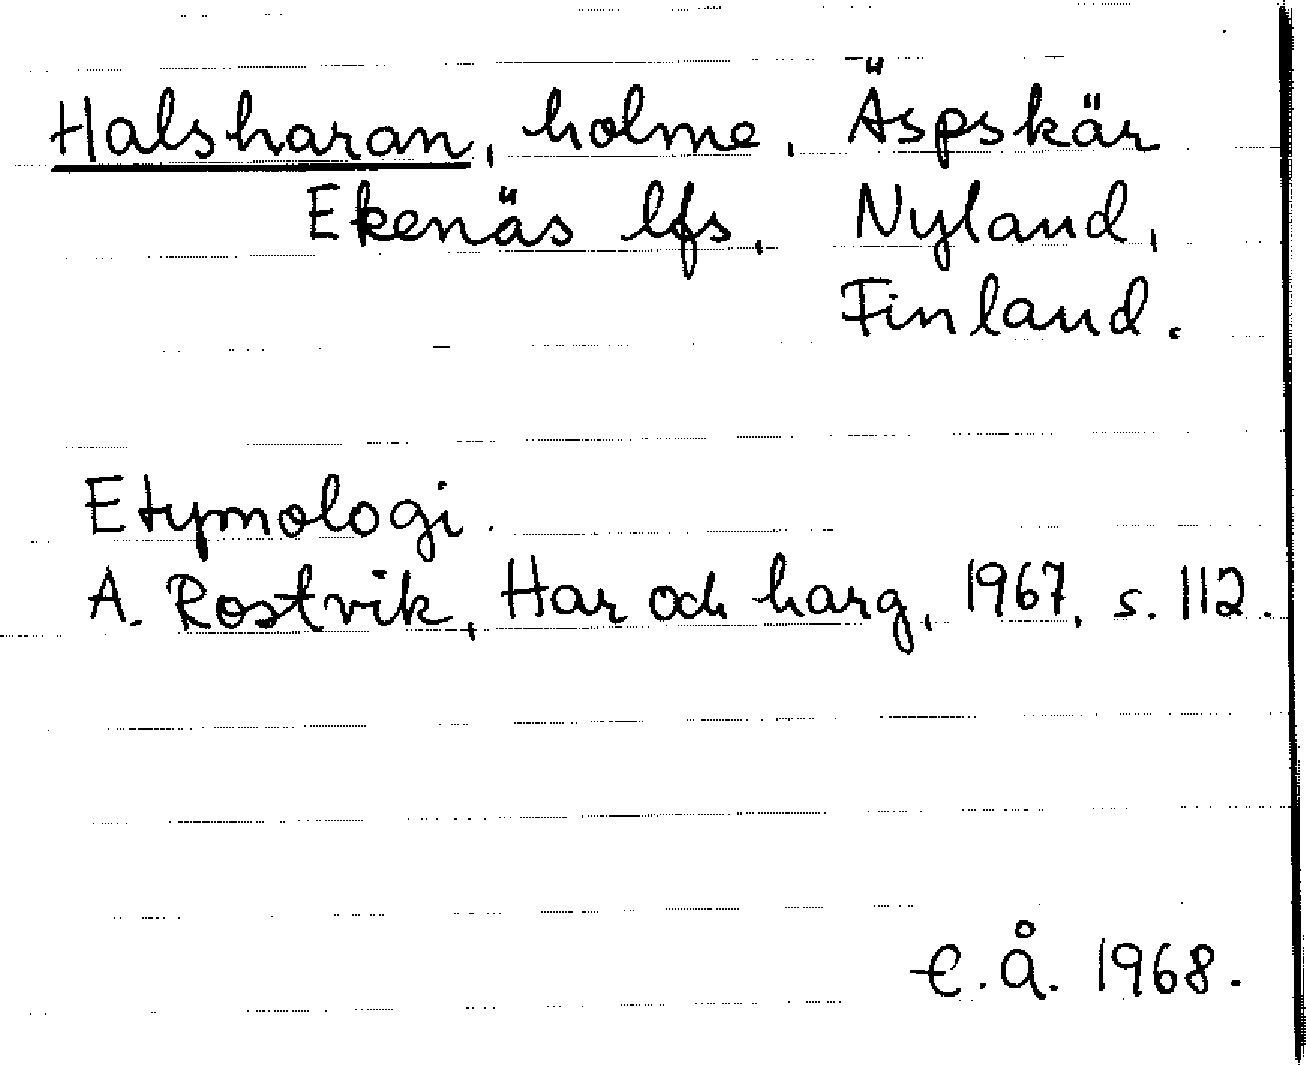 Halsharan, holme, Äspskär
Ekenäs lfs, Nyland,
Finland.
Etymologi.
A. Rostvik, Har och harg, 1967, s. 112.
C.Å. 1968.